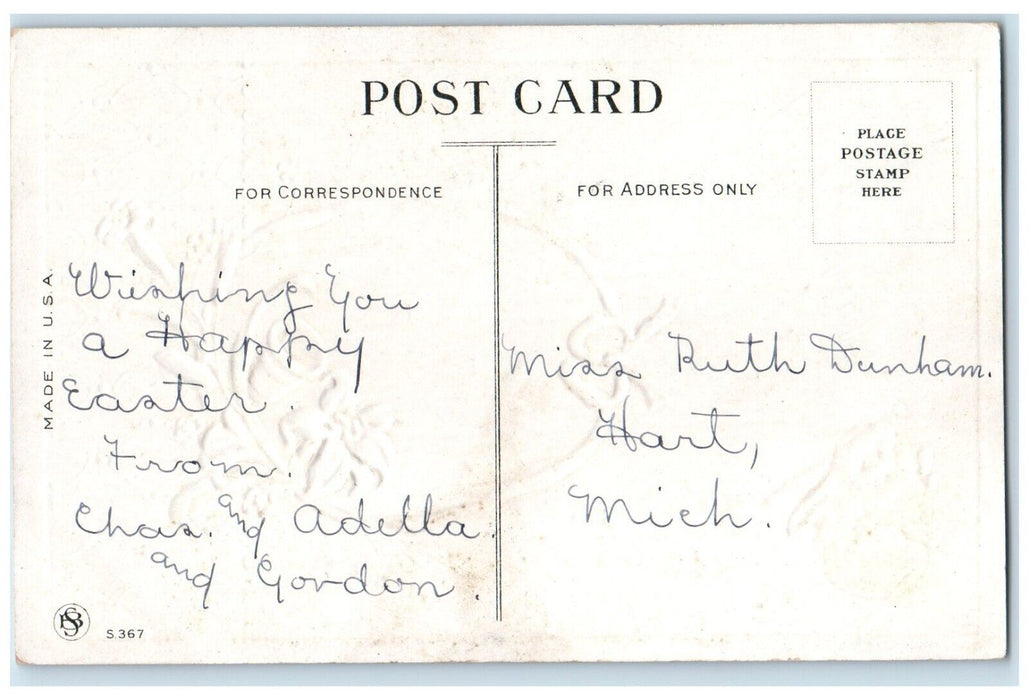 POST CARD
FOR CORRESPONDENCE
FOR ADDRESS ONLY
PLACE
POSTAGE
STAMP
HERE
MADE IN U.S.A.
Wishing You
a Happy
Easter.
From.
Chas. and Adella.
and Gordon.
Miss Ruth Dunham.
Hart,
Mich.
S.367